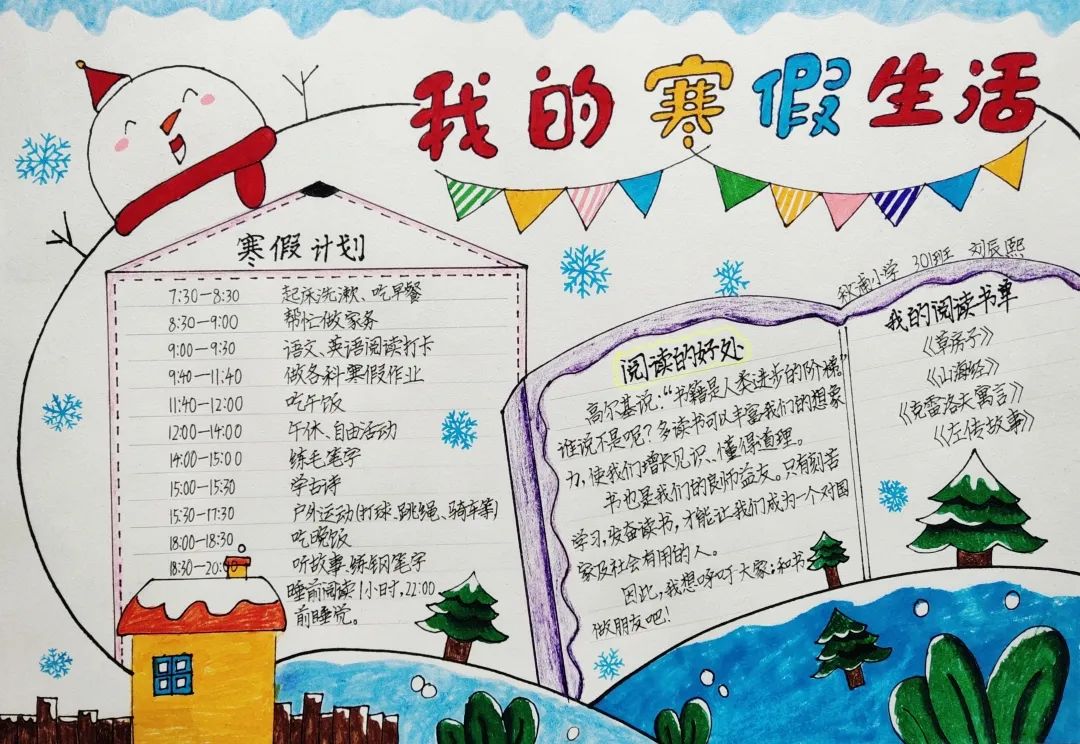 我的寒假生活
寒假计划
7:30—8:30 起床洗漱、吃早餐
8:30—9:00 帮忙做家务
9:00—9:30 语文、英语阅读打卡
9:40—11:40 做各科寒假作业
11:40—12:00 吃午饭
12:00—14:00 午休、自由活动
14:00—15:00 练毛笔字
15:00—15:30 学古诗
15:30—17:30 户外运动(打球、跳绳、骑车等)
18:00—18:30 吃晚饭
18:30—20:00 听故事、练钢笔字
睡前阅读1小时,22:00
前睡觉。
小学 301班 刘辰熙
阅读的好处
高尔基说:“书籍是人类进步的阶梯。”
谁说不是呢?多读书可以丰富我们的想象
力,使我们增长见识、懂得道理。
书也是我们的良师益友。只有刻苦
学习,发奋读书,才能让我们成为一个对国
家及社会有用的人。
因此,我想呼吁大家:和书
做朋友吧!
我的阅读书单
《草房子》
《山海经》
《克雷洛夫寓言》
《左传故事》